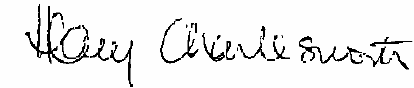 Hilary Charlesworth